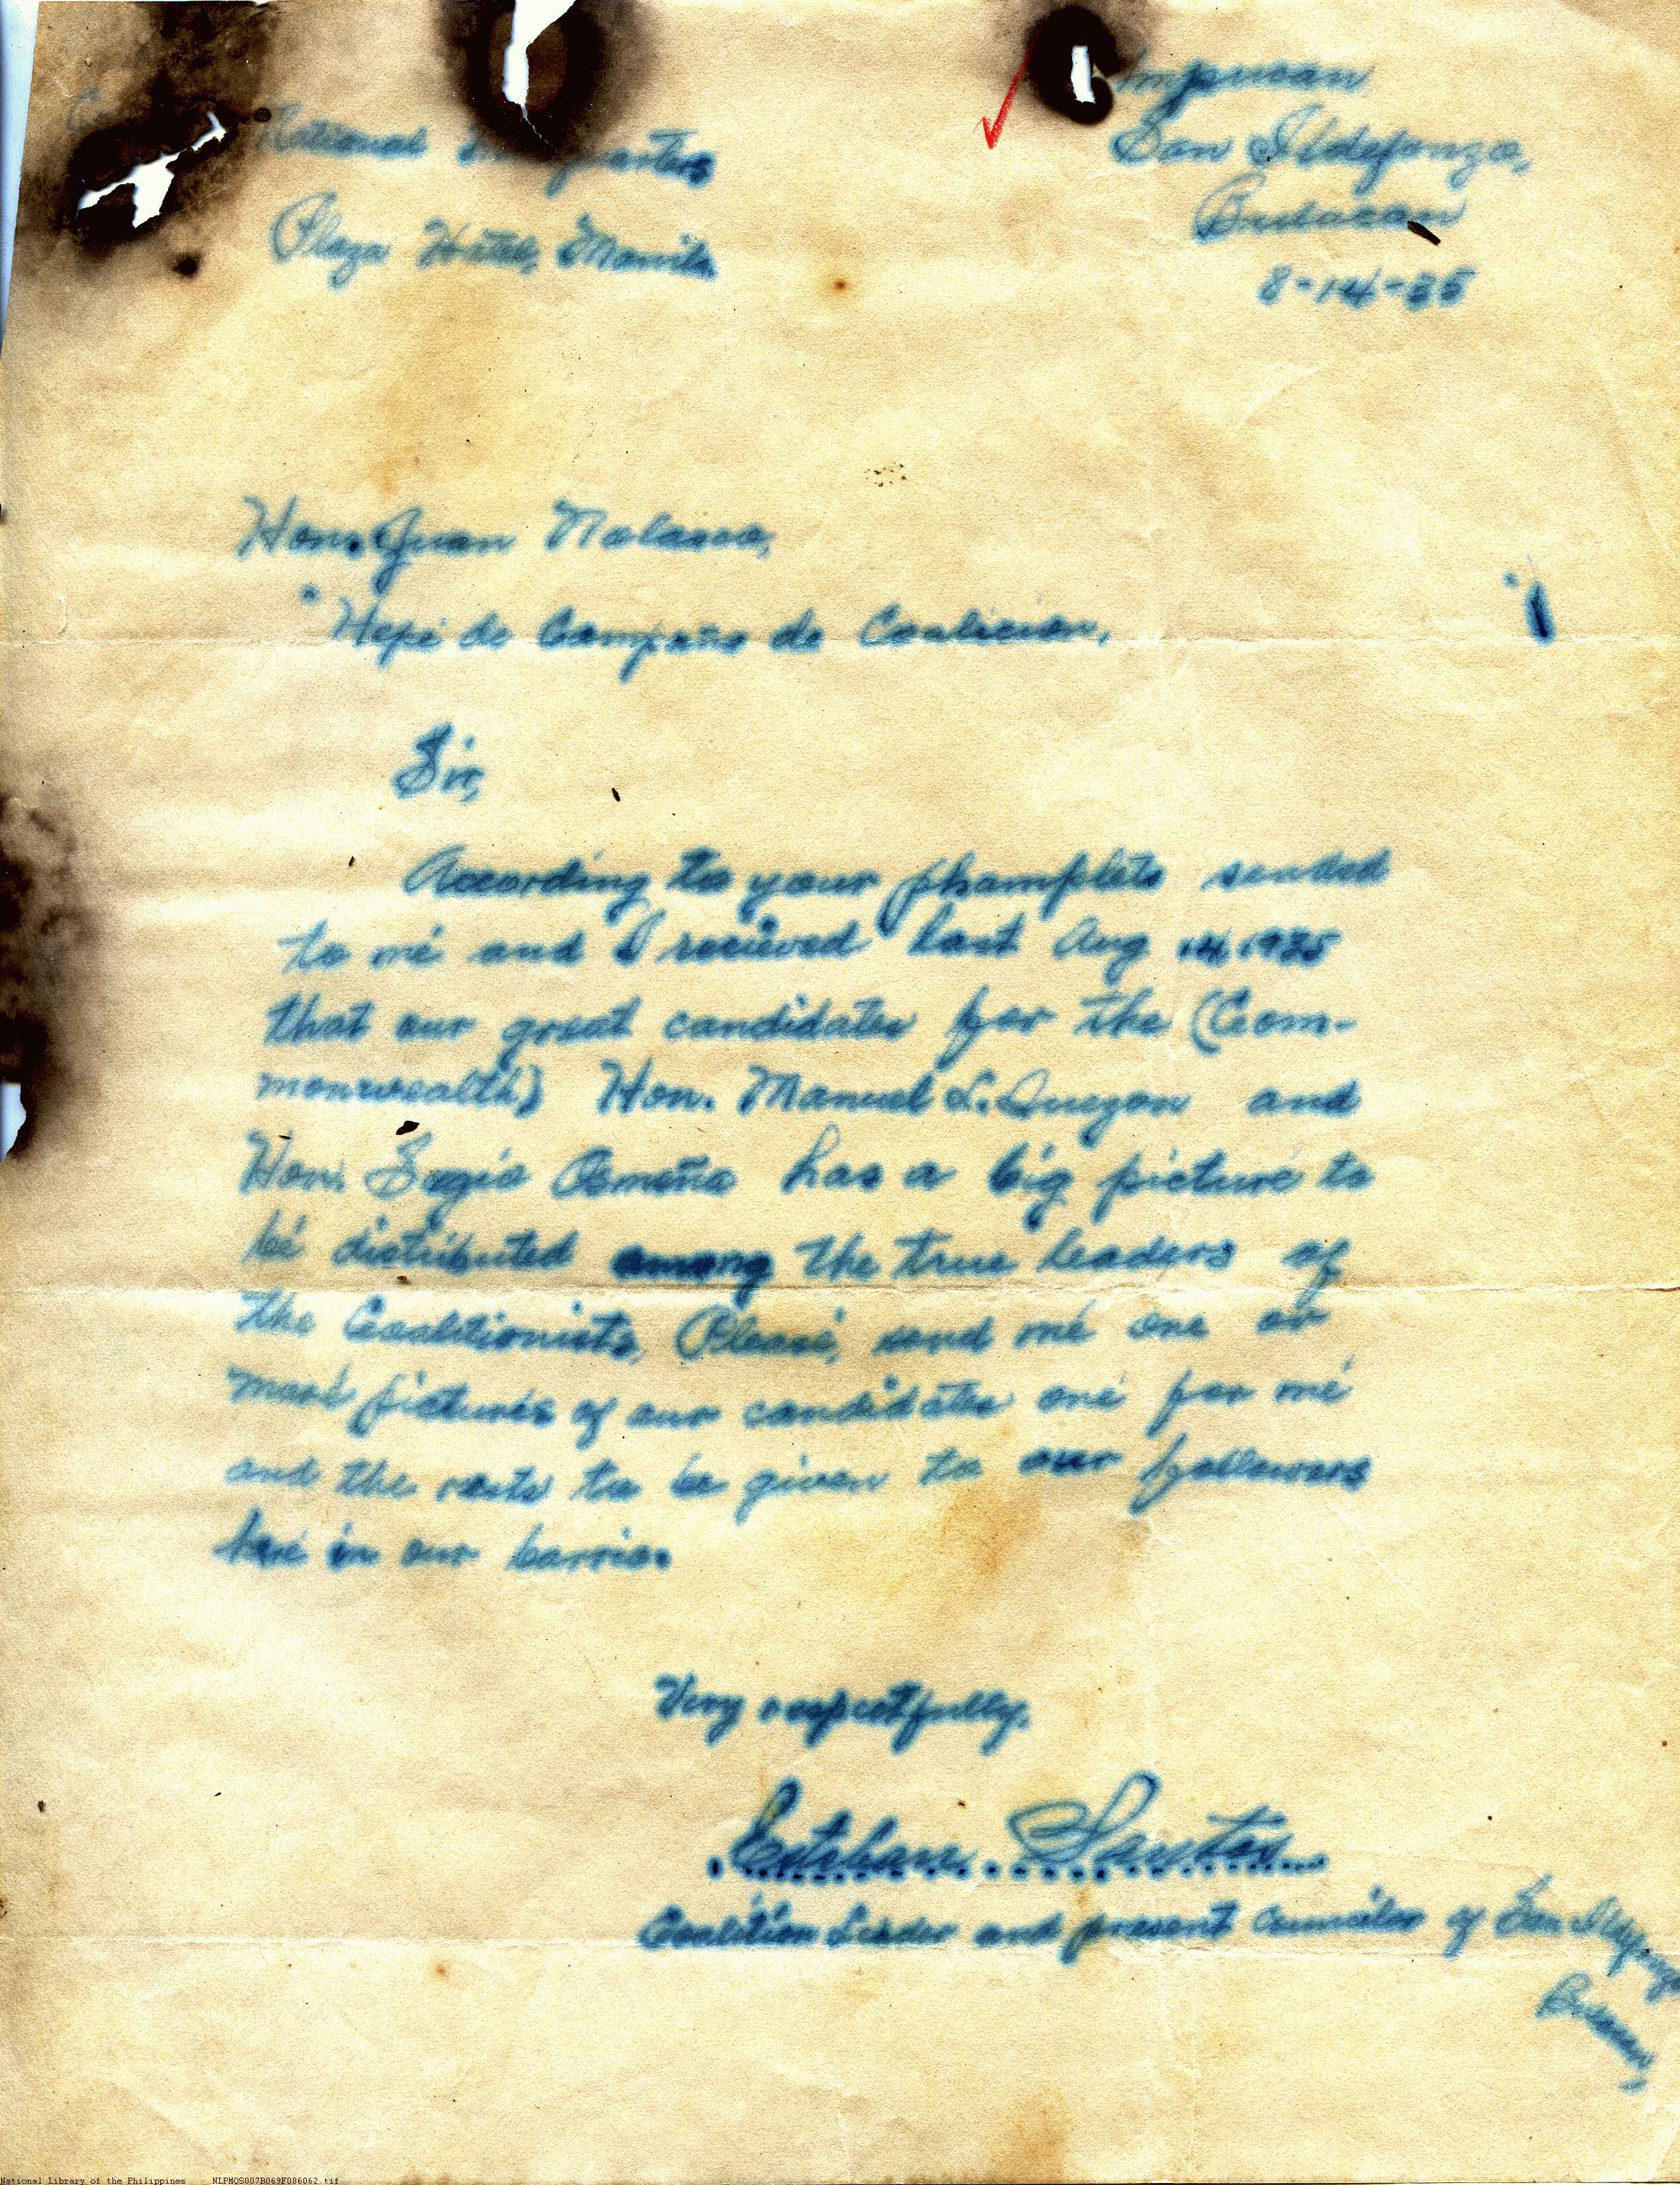 National
Plaza Hotel, Manila
San Ildefonzo,
Bulacan
8-14-35
Hon. Juan Nolasco,
Hepe de Campaña de Coalicion,
Sir,
According to your phamplets sended
to me and I recieved last Aug 14, 1935
that our great candidates for the (Com-
monwealth) Hon. Manuel L. Quezon and
Hon. Sergio Osmeña has a big picture to
be distributed among the true leaders of
the Coalitionists, Please, send me one or
more pictures of our candidates one for me
and the rests to be given to our followers
here in our barrio.
Very respectfully,
Esteban Santos
Coalition Leader and present councilor of San Ildefonzo
Bulacan
National Library of the Philippines NLPMQS007B069F086062.tif